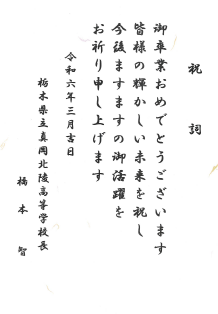 祝詞
御卒業おめでとうございます
皆様の輝かしい未来を祝し
今後ますますの御活躍を
お祈り申し上げます
令和六年三月吉日
栃木県立真岡北陵高等学校長
橋本智